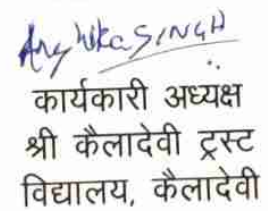 SINGH
कार्यकारी अध्यक्ष
श्री कैलादेवी ट्रस्ट
विद्यालय, कैलादेवी